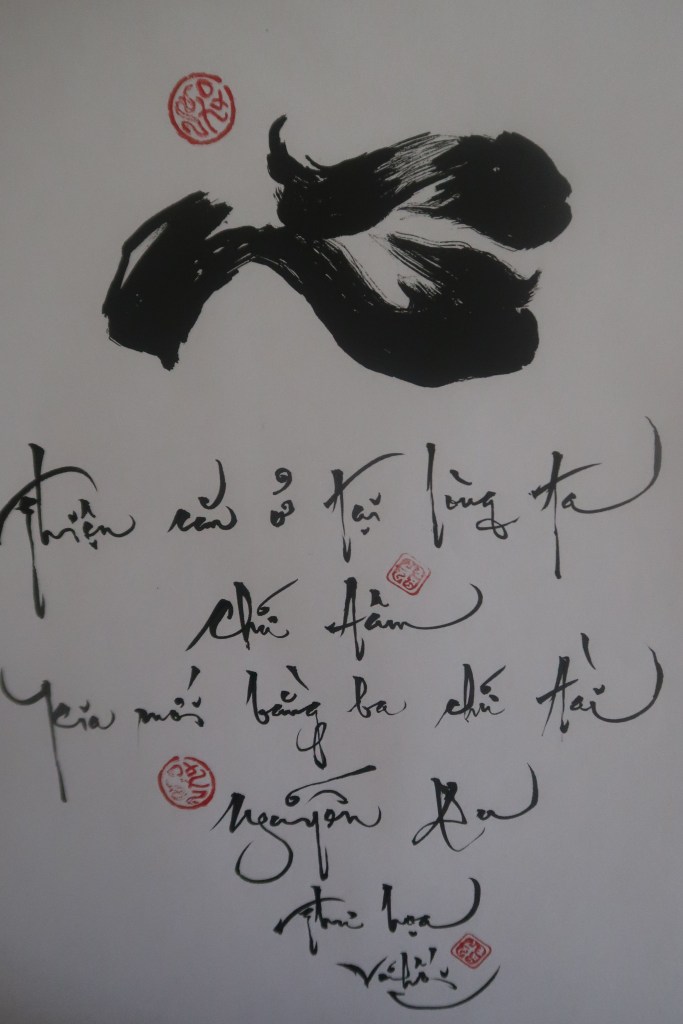 Thiện căn ở tại lòng ta
chữ tâm
Kia mới bằng ba chữ tài
Nguyễn Du
thư họa
Vũ Hối